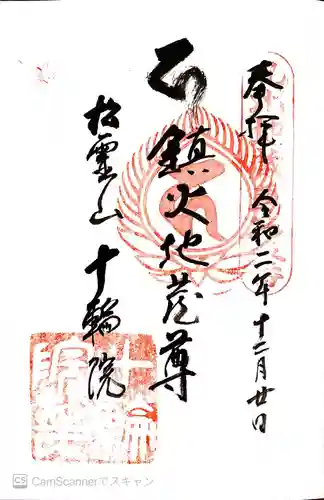 奉拝 令和二年十二月廿日
鎮火地蔵尊
拾靈山 十輪院
CS CamScannerでスキャン